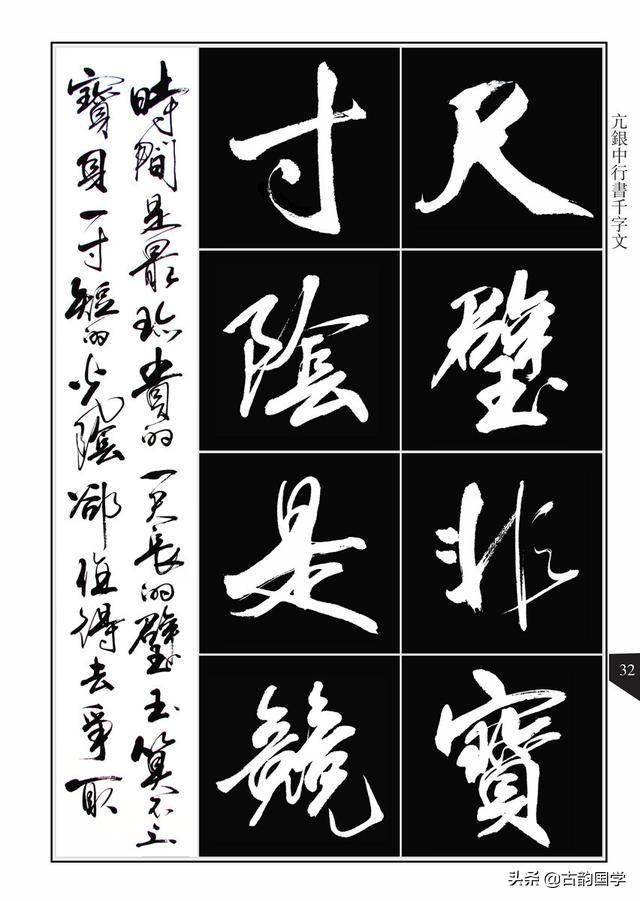 亢銀中行書千字文
32
尺璧非寶
寸陰是競
時間是最珍貴的一尺長的璧玉算不上
寶貝一寸短的光陰卻值得去爭取
头条 @古韵国学